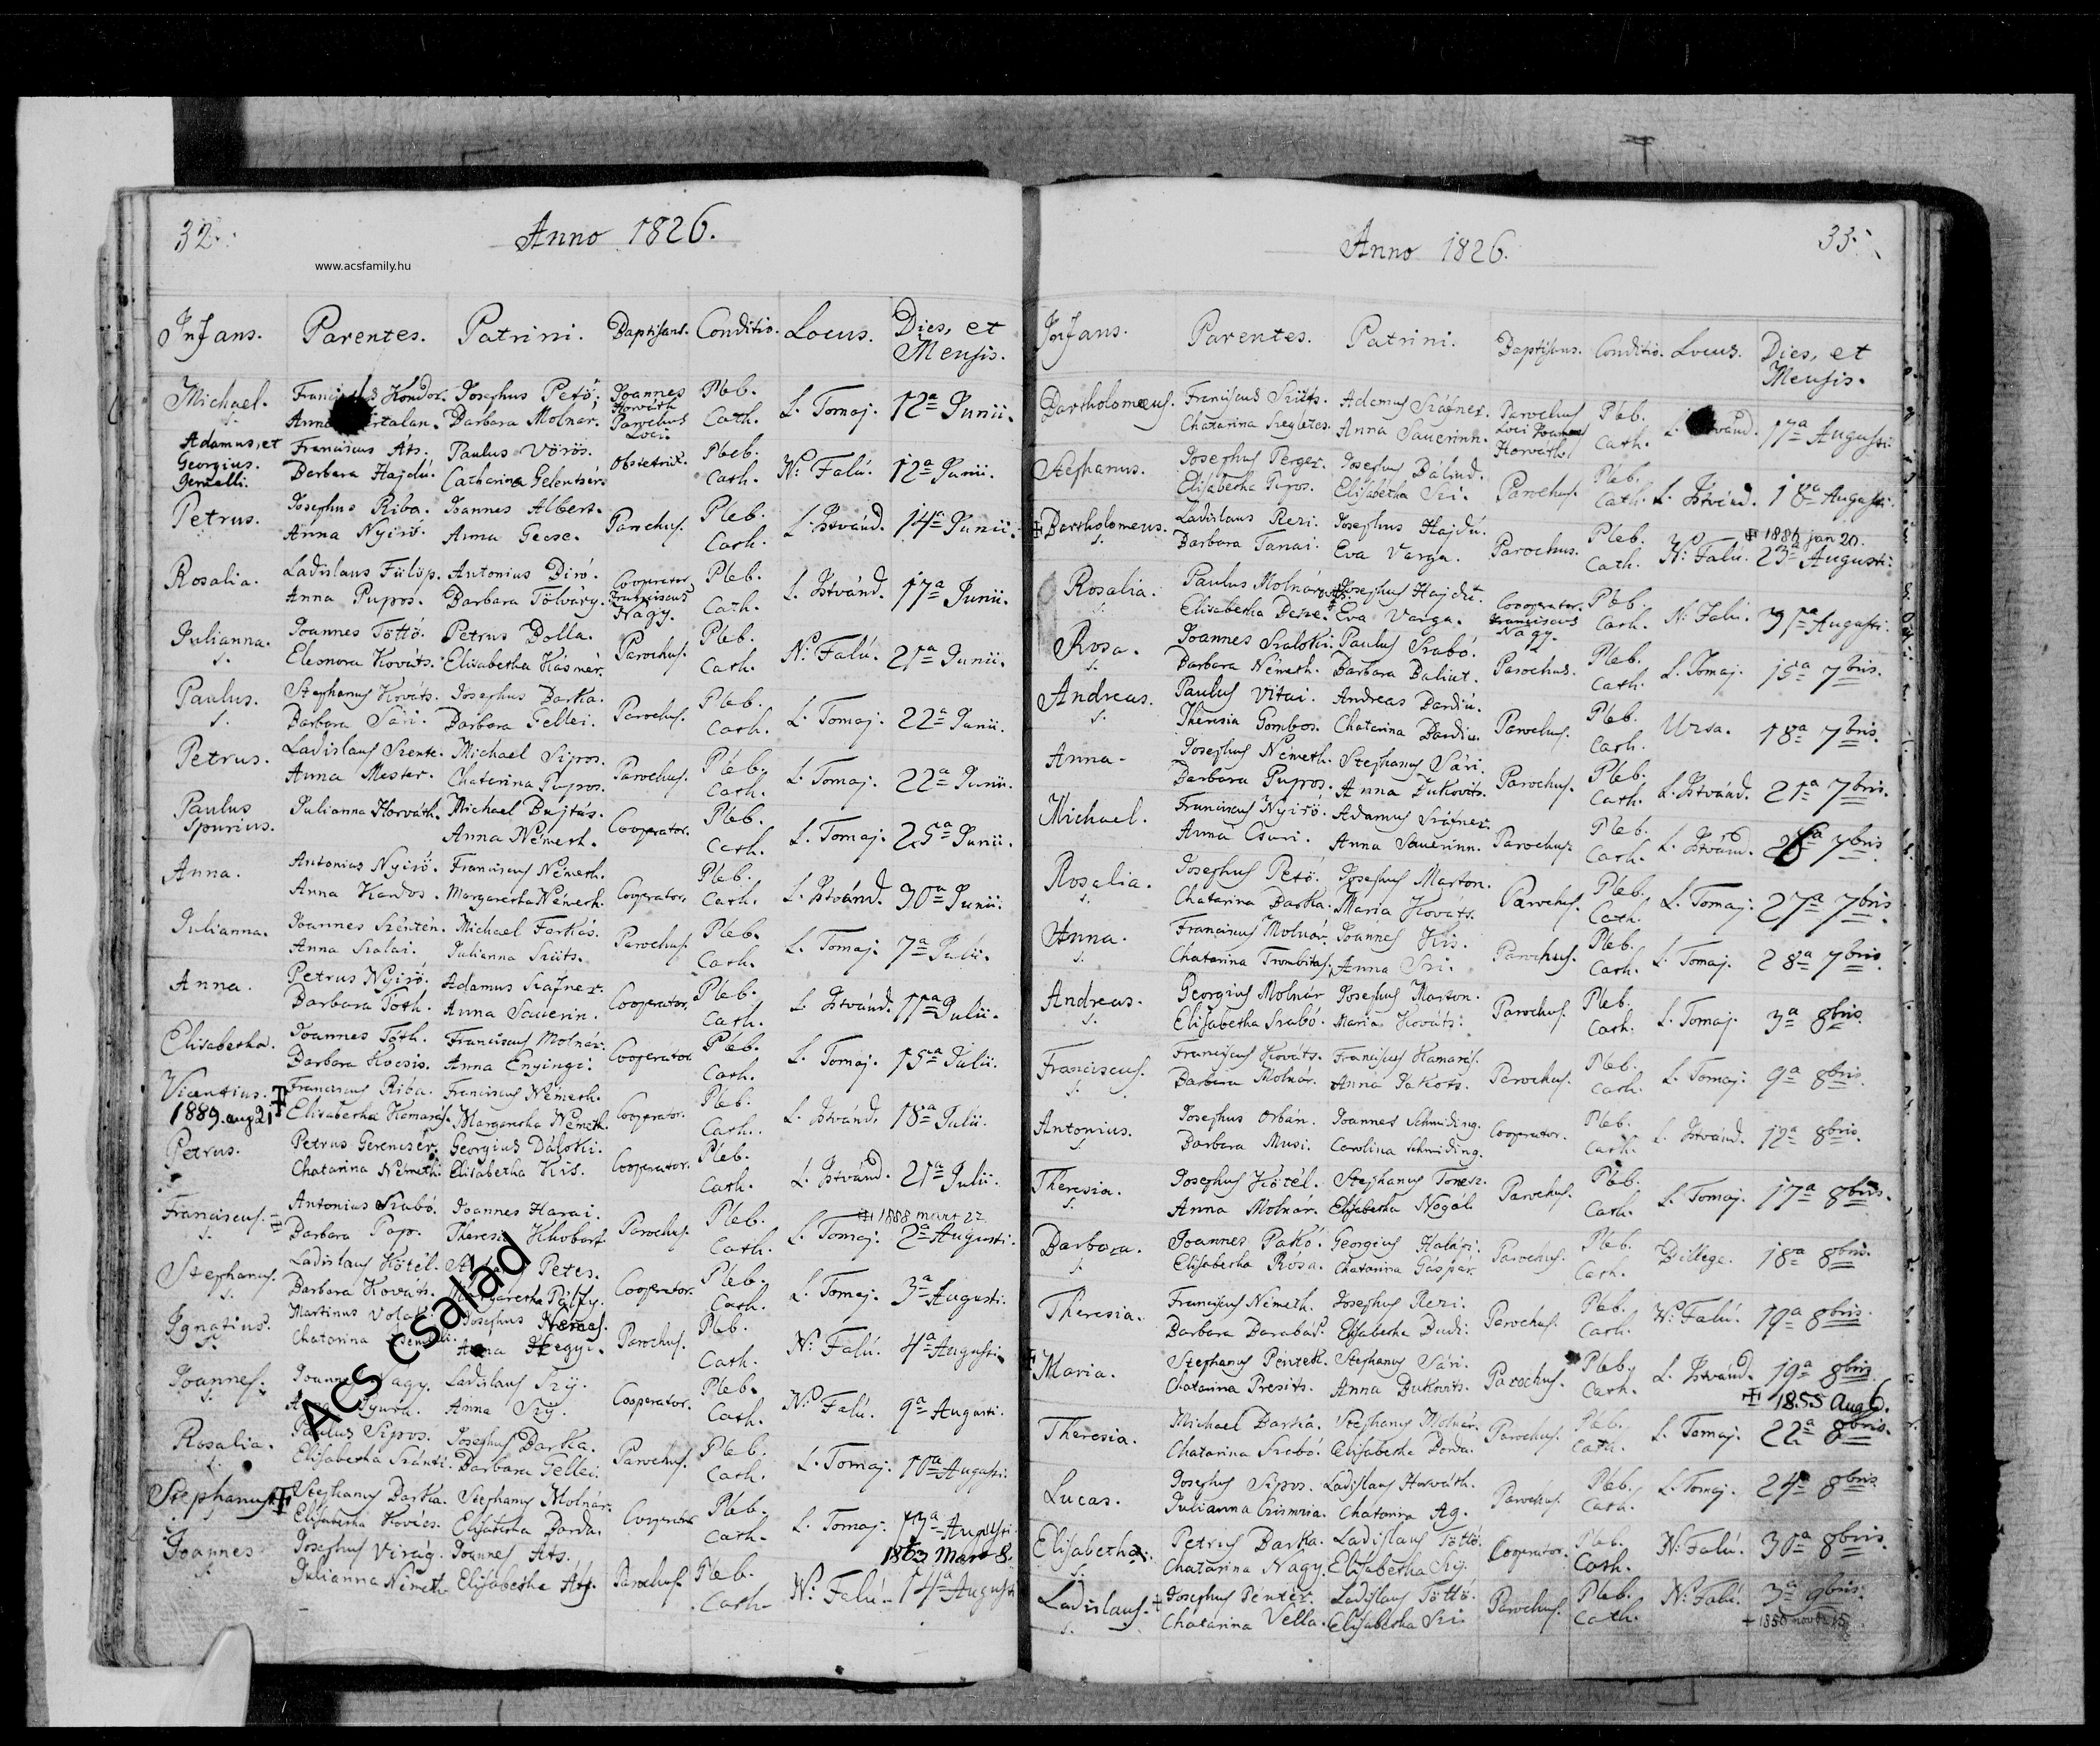 32.
Anno 1826.
www.acsfamily.hu
Infans. Parentes. Patrini. Baptisans. Conditio. Locus. Dies, et
Mensis.
Michael. Franciscus Kondor. Josephus Pető. Joannes Pleb.
Anna Barbara Molnár. Horváth Parochus Loci. Cath. L. Tomaj. 12a Junii.
Adamus, et Franciscus Áts. Paulus Vörös. Obstetrix. Pleb.
Georgius. Gemelli. Barbara Hajdú. Catharina Gelentsér Cath. N. Falú. 12a Junii.
Petrus. Josephus Riba. Joannes Albert. Parochus. Pleb.
Anna Nyirő. Anna Gecse. Cath. L. Istvánd. 14a Junii.
Rosalia. Ladislaus Fülöp. Antonius Biró. Cooperator Pleb.
Anna Pupos. Barbara Tölváry. Franciscus Nagy. Cath. L. Istvánd. 17a Junii.
Julianna. Joannes Töttö. Petrus Dolla. Parochus. Pleb.
Eleonora Kováts. Elisabetha Kásmér. Cath. N. Falú. 21a Junii.
Paulus. Stephanus Kováts. Josephus Barka. Parochus. Pleb.
Barbara Sári. Barbara Gellei. Cath. L. Tomaj. 22a Junii.
Petrus. Ladislaus Szente. Michael Sipos. Parochus. Pleb.
Anna Mester. Chatarina Pupos. Cath. L. Tomaj. 22a Junii.
Paulus Julianna Horváth. Michael Bujtás. Cooperator. Pleb.
Spurius. Anna Németh. Cath. L. Tomaj. 25a Junii.
Anna. Antonius Nyirő. Franciscus Németh. Cooperator. Pleb.
Anna Kardos. Margaretha Németh. Cath. L. Istvánd. 30a Junii.
Julianna. Joannes Szentén. Michael Farkas. Parochus. Pleb.
Anna Szalai. Julianna Szüts. Cath. L. Tomaj. 7a Julii.
Anna. Petrus Nyirő. Adamus Száfner. Cooperator. Pleb.
Barbara Tóth. Anna Sauerin. Cath. L. Istvánd. 11a Julii.
Elisabetha. Joannes Tóth. Franciscus Molnár. Cooperator Pleb.
Barbara Kocsis. Anna Enyingi. Cath. L. Tomaj. 15a Julii.
Vicentius. Franciscus Riba. Franciscus Németh. Cooperator. Pleb.
1889. aug 21 Elisabetha Kamarás. Margaretha Németh. Cath. L. Istvánd. 18a Julii.
Petrus. Petrus Gerencsér. Georgius Páloki. Cooperator. Pleb.
Chatarina Németh. Elisabetha Kis. Cath. L. Istvánd. 21a Julii.
Franciscus. Antonius Szabó. Joannes Harai. Parochus. Pleb. 1888 mart 27
Barbara Pap. Theresia Cath. L. Tomaj. 2a Augusti.
Stephanus. Ladislaus Kötél. Petes. Cooperator. Pleb.
Barbara Kováts. Margaretha Pálfy. Cath. L. Tomaj. 3a Augusti.
Ignatius. Martinus Josephus Parochus. Pleb.
Chatarina Anna Hegyi. Cath. N. Falú. 4a Augusti.
Joannes. Joannes Nagy. Ladislaus Szij. Cooperator. Pleb.
Gyura. Anna Szij. Cath. N. Falú. 9a Augusti.
Rosalia. Paulus Sipos. Josephus Barka. Parochus. Pleb.
Elisabetha Szánti. Barbara Gellei. Cath. L. Tomaj. 10a Augusti.
Stephanus Stephanus Barka. Stephanus Molnár. Cooperator Pleb.
Elisabetha Kovács. Elisabetha Dorda. Cath. L. Tomaj. 13a Augusti
1863 Mart 8.
Joannes Josephus Virág. Joannes Ats. Parochus. Pleb.
Julianna Németh Elisabetha Ats. Cath. N. Falú. 14a Augusti
Ács család
33.
Anno 1826.
Infans. Parentes. Patrini. Baptisans. Conditio. Locus. Dies, et
Mensis.
Bartholomeus. Franciscus Szüts. Adamus Száfner. Parochus Pleb.
Chatarina Szegletes. Anna Sauerinn. Loci Joannes Horváth. Cath. L. Istvánd. 17a Augusti
Stephanus. Josephus Perger. Josephus Bálind. Parochus. Pleb.
Elisabetha Pupos. Elisabetha Szi. Cath. L. Istvánd. 18a Augusti.
Bartholomeus. Ladislaus Rezi. Josephus Hajdú. Parochus. Pleb. 1886 jan 20.
Barbara Tanai. Eva Varga. Cath. N. Falú. 23a Augusti.
Rosalia. Paulus Molnár Josephus Hajdú. Cooperator. Pleb.
Elisabetha Eva Varga. Franciscus Nagy. Cath. N. Falú. 31a Augusti.
Rosa. Joannes Szaloki. Paulus Szabó. Parochus. Pleb.
Barbara Németh. Barbara Baliut. Cath. L. Tomaj. 15a 7bris.
Andreas. Paulus Vitai. Andreas Bardiú. Parochus. Pleb.
Theresia Gombos. Chatarina Bardiu. Cath. Ursa. 18a 7bris.
Anna. Josephus Németh. Stephanus Sári. Parochus. Pleb.
Barbara Pupos. Anna Dukovits. Cath. L. Istvánd. 21a 7bris.
Michael. Franciscus Nyirő. Adamus Száfner. Parochus Pleb.
Anna Csuri. Anna Sauerinn. Cath. L. Istvánd. 26a 7bris
Rosalia. Josephus Pető. Josephus Marton. Parochus. Pleb.
Chatarina Barka. Maria Kováts. Cath. L. Tomaj. 27a 7bris
Anna. Franciscus Molnár. Joannes Kis. Parochus. Pleb.
Chatarina Trombitas. Anna Szi. Cath. L. Tomaj. 28a 7bris.
Andreas. Georgius Molnár Josephus Marton. Parochus. Pleb.
Elisabetha Szabó. Maria Kováts. Cath. L. Tomaj. 3a 8bris.
Franciscus. Franciscus Kováts. Franciscus Kamarás. Parochus. Pleb.
Barbara Molnár. Anna Cath. L. Tomaj. 9a 8bris.
Antonius. Josephus Orbán. Joannes Schmiding. Cooperator. Pleb.
Barbara Musi. Carolina Schmiding. Cath. L. Istvánd. 12a 8bris.
Theresia. Josephus Kötél. Stephanus Parochus. Pleb.
Anna Molnár. Elisabetha Nogál. Cath. L. Tomaj. 17a 8bris.
Barbara. Joannes Pakó. Georgius Halápi. Parochus. Pleb.
Elisabetha Rósa. Chatarina Gáspár. Cath. Billege. 18a 8bris.
Theresia. Franciscus Németh. Josephus Rezi. Parochus. Pleb.
Barbara Barabás. Elisabetha Dudi. Cath. N. Falú. 19a 8bris.
Maria. Stephanus Péntek. Stephanus Sári. Parochus. Pleb.
Chatarina Presits. Anna Dukovits. Cath. L. Istvánd. 19a 8bris.
1855 Aug 6.
Theresia. Michael Barka. Stephanus Molnár. Parochus. Pleb.
Chatarina Szabó. Elisabetha Dorda. Cath. L. Tomaj. 22a 8bris.
Lucas. Josephus Sipos. Ladislaus Horváth. Parochus. Pleb.
Julianna Chatarina Ag. Cath. L. Tomaj. 24a 8bris
Elisabetha. Petrus Barka. Ladislaus Töttö. Cooperator. Pleb.
Chatarina Nagy. Elisabetha Szij. Cath. N. Falú. 30a 8bris.
Ladislaus. Josephus Péntek. Ladislaus Töttö. Parochus. Pleb.
Chatarina Vella. Elisabetha Szi. Cath. N. Falú. 3a 9bris.